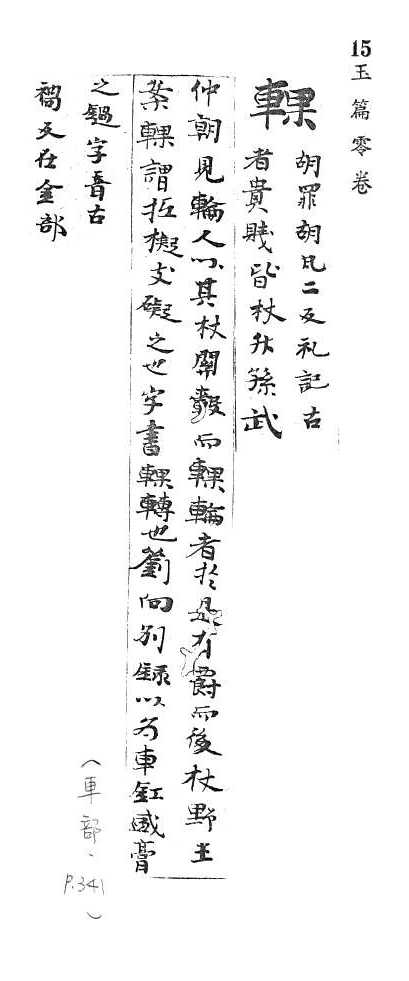 15 玉篇零卷
輠 胡罪胡瓦二反礼記古
者貴賤皆杖外孫武
仲朝見輪人以其杖關轂而輠輪者於是有爵而後杖野王
案輠謂抂擬支礙之也字書輠轉也劉向別錄以为車釭盛膏
之鐹字音古
禍反在金部
(車部、P.341)